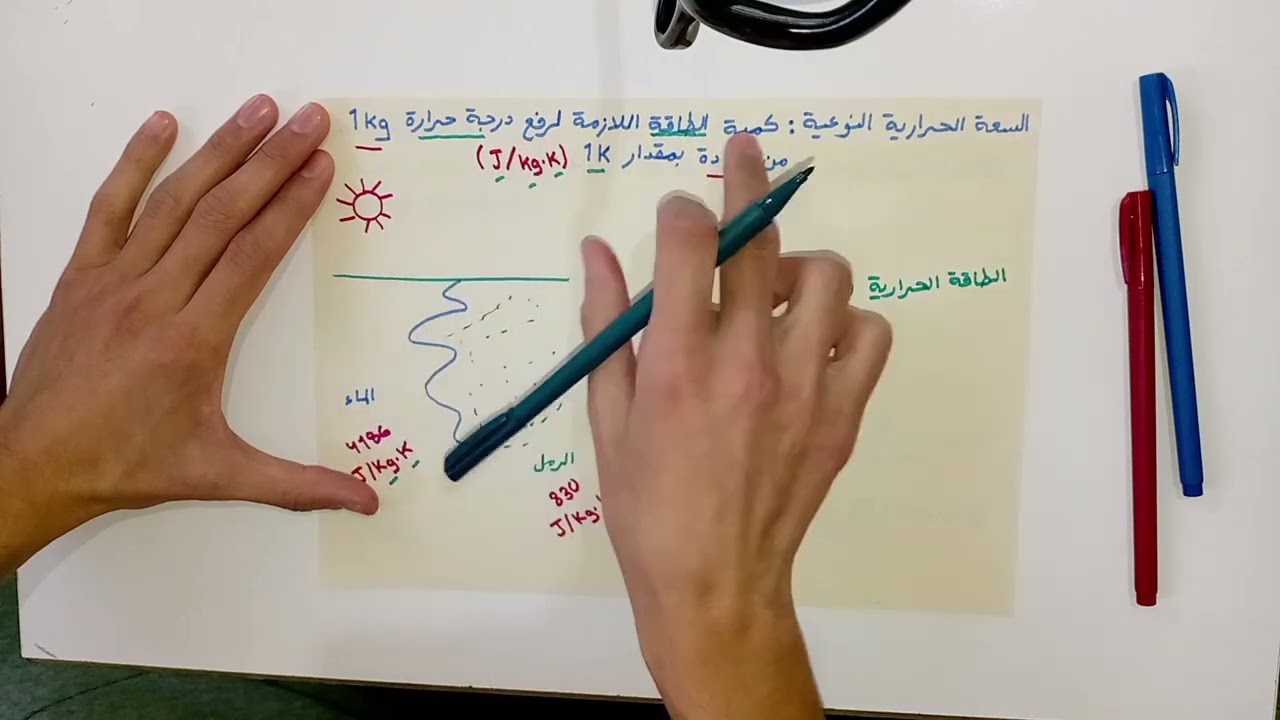 السعة الحرارية النوعية : كمية الطاقة اللازمة لرفع درجة حرارة 1kg
من دة بمقدار 1K (J/kg.K)
الطاقة الحرارية
الماء
4186
J/kg.K
الرمل
830
J/kg.